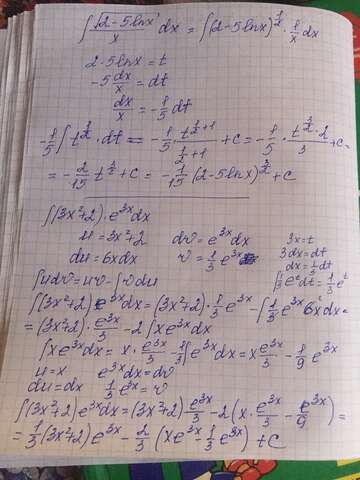 ∫ √(2-5lnx)/x dx = ∫(2-5lnx)^(1/2) · 1/x dx
2-5lnx = t
-5 dx/x = dt
dx/x = -1/5 dt
-1/5 ∫ t^(1/2) · dt = -1/5 · t^(1/2+1)/(1/2+1) + c = -1/5 · t^(3/2) · 2/3 + c =
= -2/15 t^(3/2) + c = -2/15 (2-5lnx)^(3/2) + c
∫(3x²+2) · e^(3x) dx
u = 3x²+2 dv = e^(3x) dx 3x = t
du = 6x dx v = 1/3 e^(3x) 3dx = dt
dx = 1/3 dt
∫u dv = uv - ∫v du 1/3 ∫e^t dt = 1/3 e^t
∫(3x²+2) e^(3x) dx = (3x²+2) · 1/3 e^(3x) - ∫ 1/3 e^(3x) 6x dx =
= (3x²+2) · e^(3x)/3 - 2∫x e^(3x) dx
∫x e^(3x) dx = x · e^(3x)/3 - 1/3 ∫e^(3x) dx = x e^(3x)/3 - 1/9 e^(3x)
u = x e^(3x) dx = dv
du = dx 1/3 e^(3x) = v
∫(3x²+2) e^(3x) dx = (3x²+2) e^(3x)/3 - 2(x · e^(3x)/3 - e^(3x)/9) =
= 1/3 (3x²+2) e^(3x) - 2/3 (x e^(3x) - 1/3 e^(3x)) + C